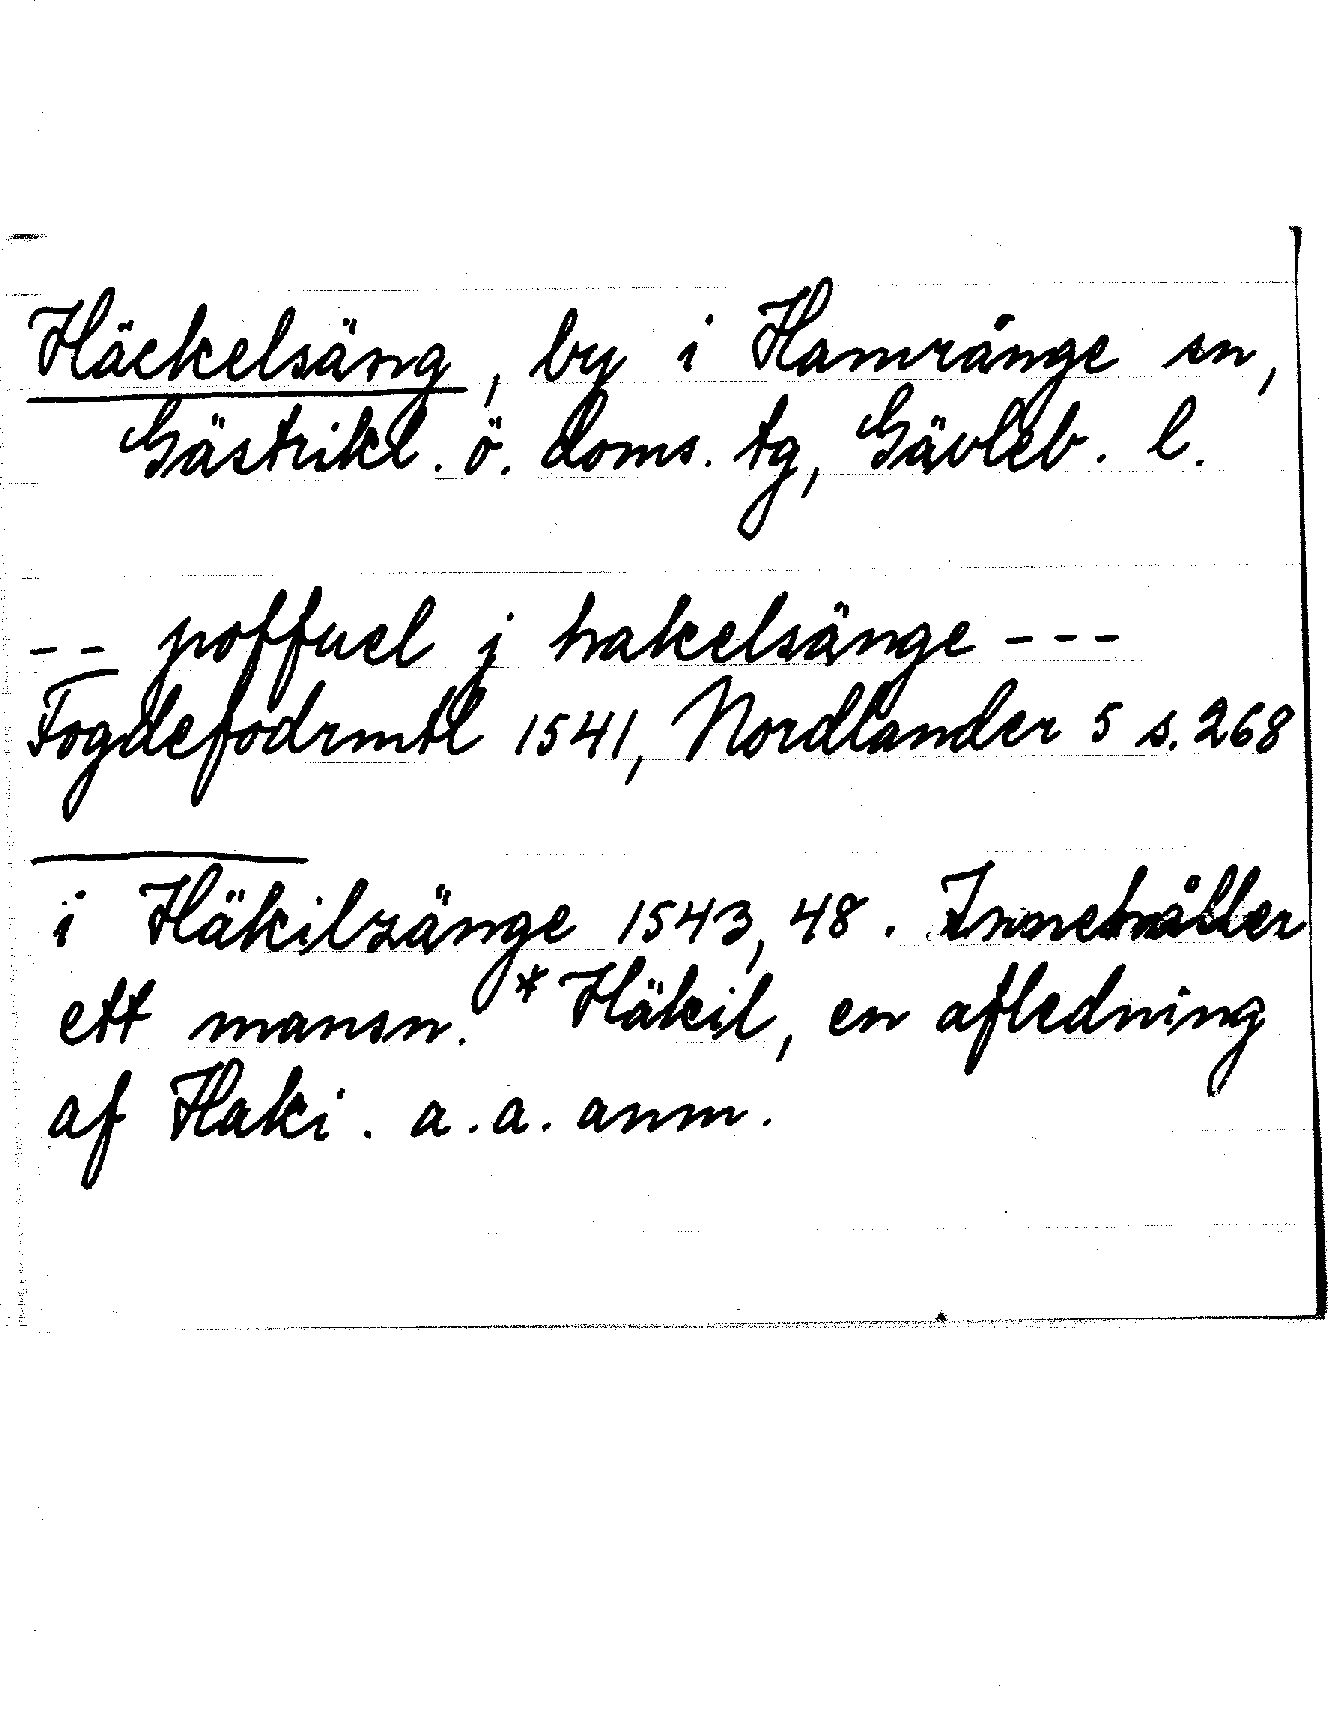 Häckelsäng, by i Hamrånge sn,
Gästrikl. ö. doms. tg, Gävleb. l.
-- poffuel j hakelsänge ---
Fogdefodrmtl 1541, Nordlander 5 s. 268
i Häkilzänge 1543, 48. Innehåller
ett mansn. *Häkil, en afledning
af Haki. a.a. anm.